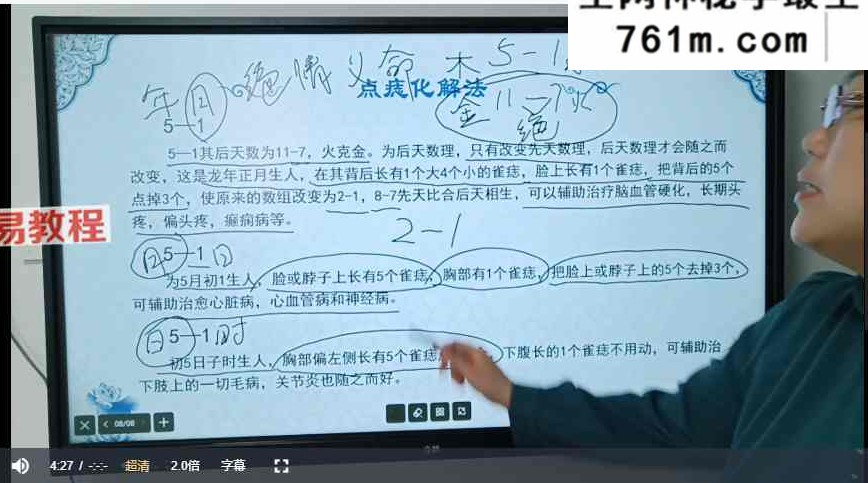 761m.com
5-1
绝情义命 木
点痣化解法
年月
金11-7火
绝
5—1
5—1其后天数为11-7，火克金。为后天数理，只有改变先天数理，后天数理才会随之而
改变，这是龙年正月生人，在其背后长有1个大4个小的雀痣，脸上长有1个雀痣，把背后的5个
点掉3个，使原来的数组改变为2-1，8-7先天比合后天相生，可以辅助治疗脑血管硬化，长期头
疼，偏头疼，癫痫病等。
易教程
2-1
月5—1日
为5月初1生人，脸或脖子上长有5个雀痣，胸部有1个雀痣，把脸上或脖子上的5个去掉3个，
可辅助治愈心脏病，心血管病和神经病。
日5—1时
初5日子时生人，胸部偏左侧长有5个雀痣
下腹长的1个雀痣不用动，可辅助治
下肢上的一切毛病，关节炎也随之而好。
08/08
4:27 / -:-:- 超清 2.0倍 字幕